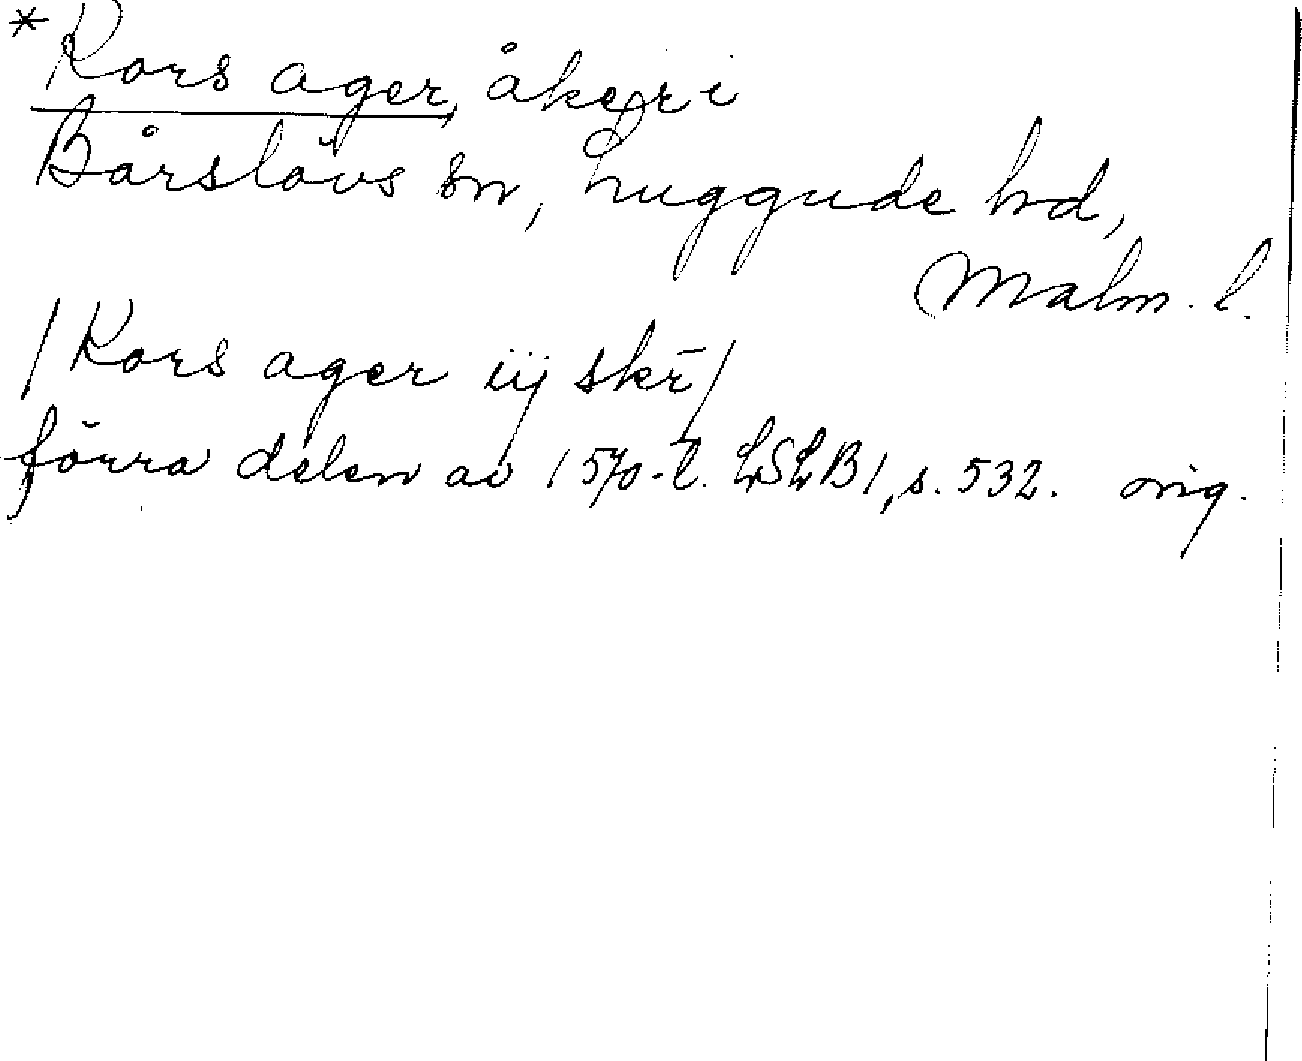 * Kors ager, åker i
Bårslövs sn, Luggude hd,
Malm. l.
/Kors ager iij skr̄/
förra delen av 1570-t. LSLB1, s. 532. orig.